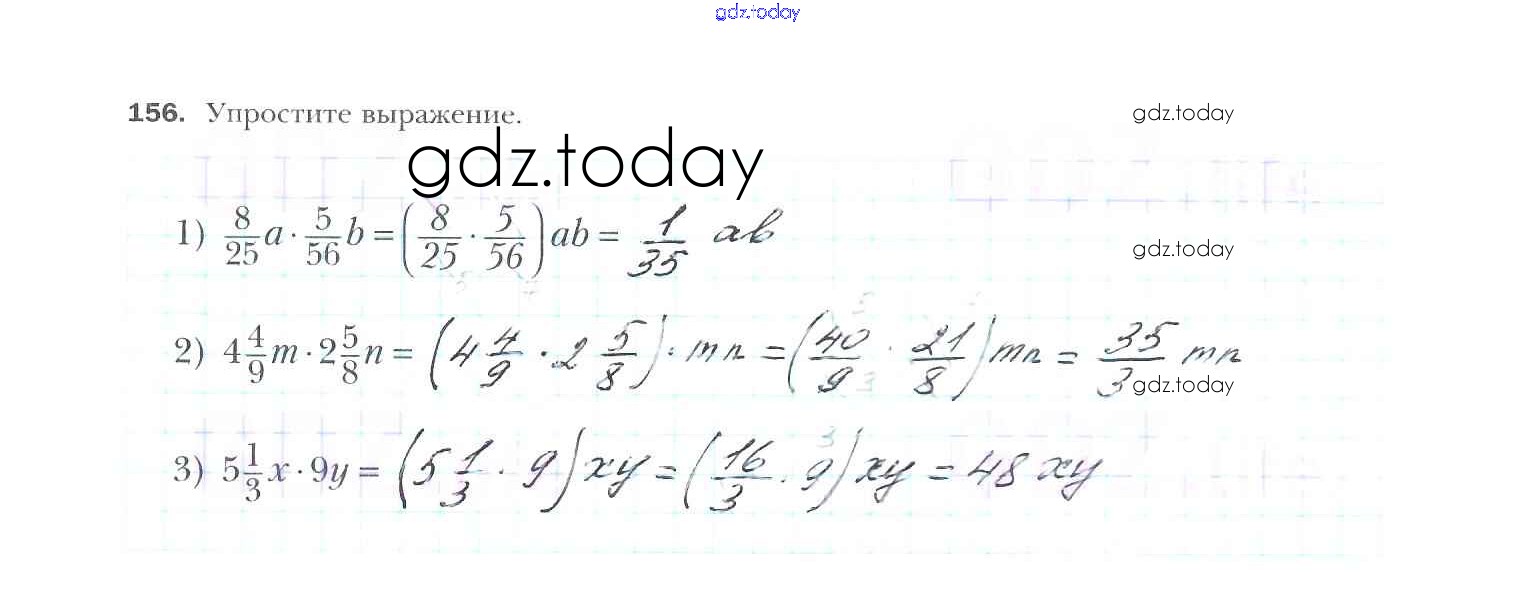 gdz.today
156. Упростите выражение.
gdz.today
gdz.today
1) 8/25 a · 5/56 b = (8/25 · 5/56) ab = 1/35 ab
gdz.today
2) 4 4/9 m · 2 5/8 n = (4 4/9 · 2 5/8) · mn = (40/9 · 21/8) mn = 35/3 mn
gdz.today
3) 5 1/3 x · 9y = (5 1/3 · 9) xy = (16/3 · 9) xy = 48 xy
gdz.today